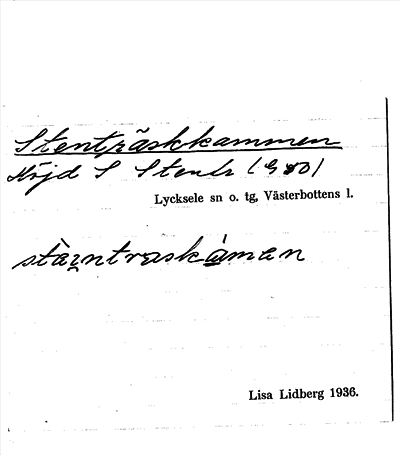 Stenträskkammen
Höjd S Stentr (G 8D)
Lycksele sn o. tg, Västerbottens l.
stàɪntraskámen
Lisa Lidberg 1936.